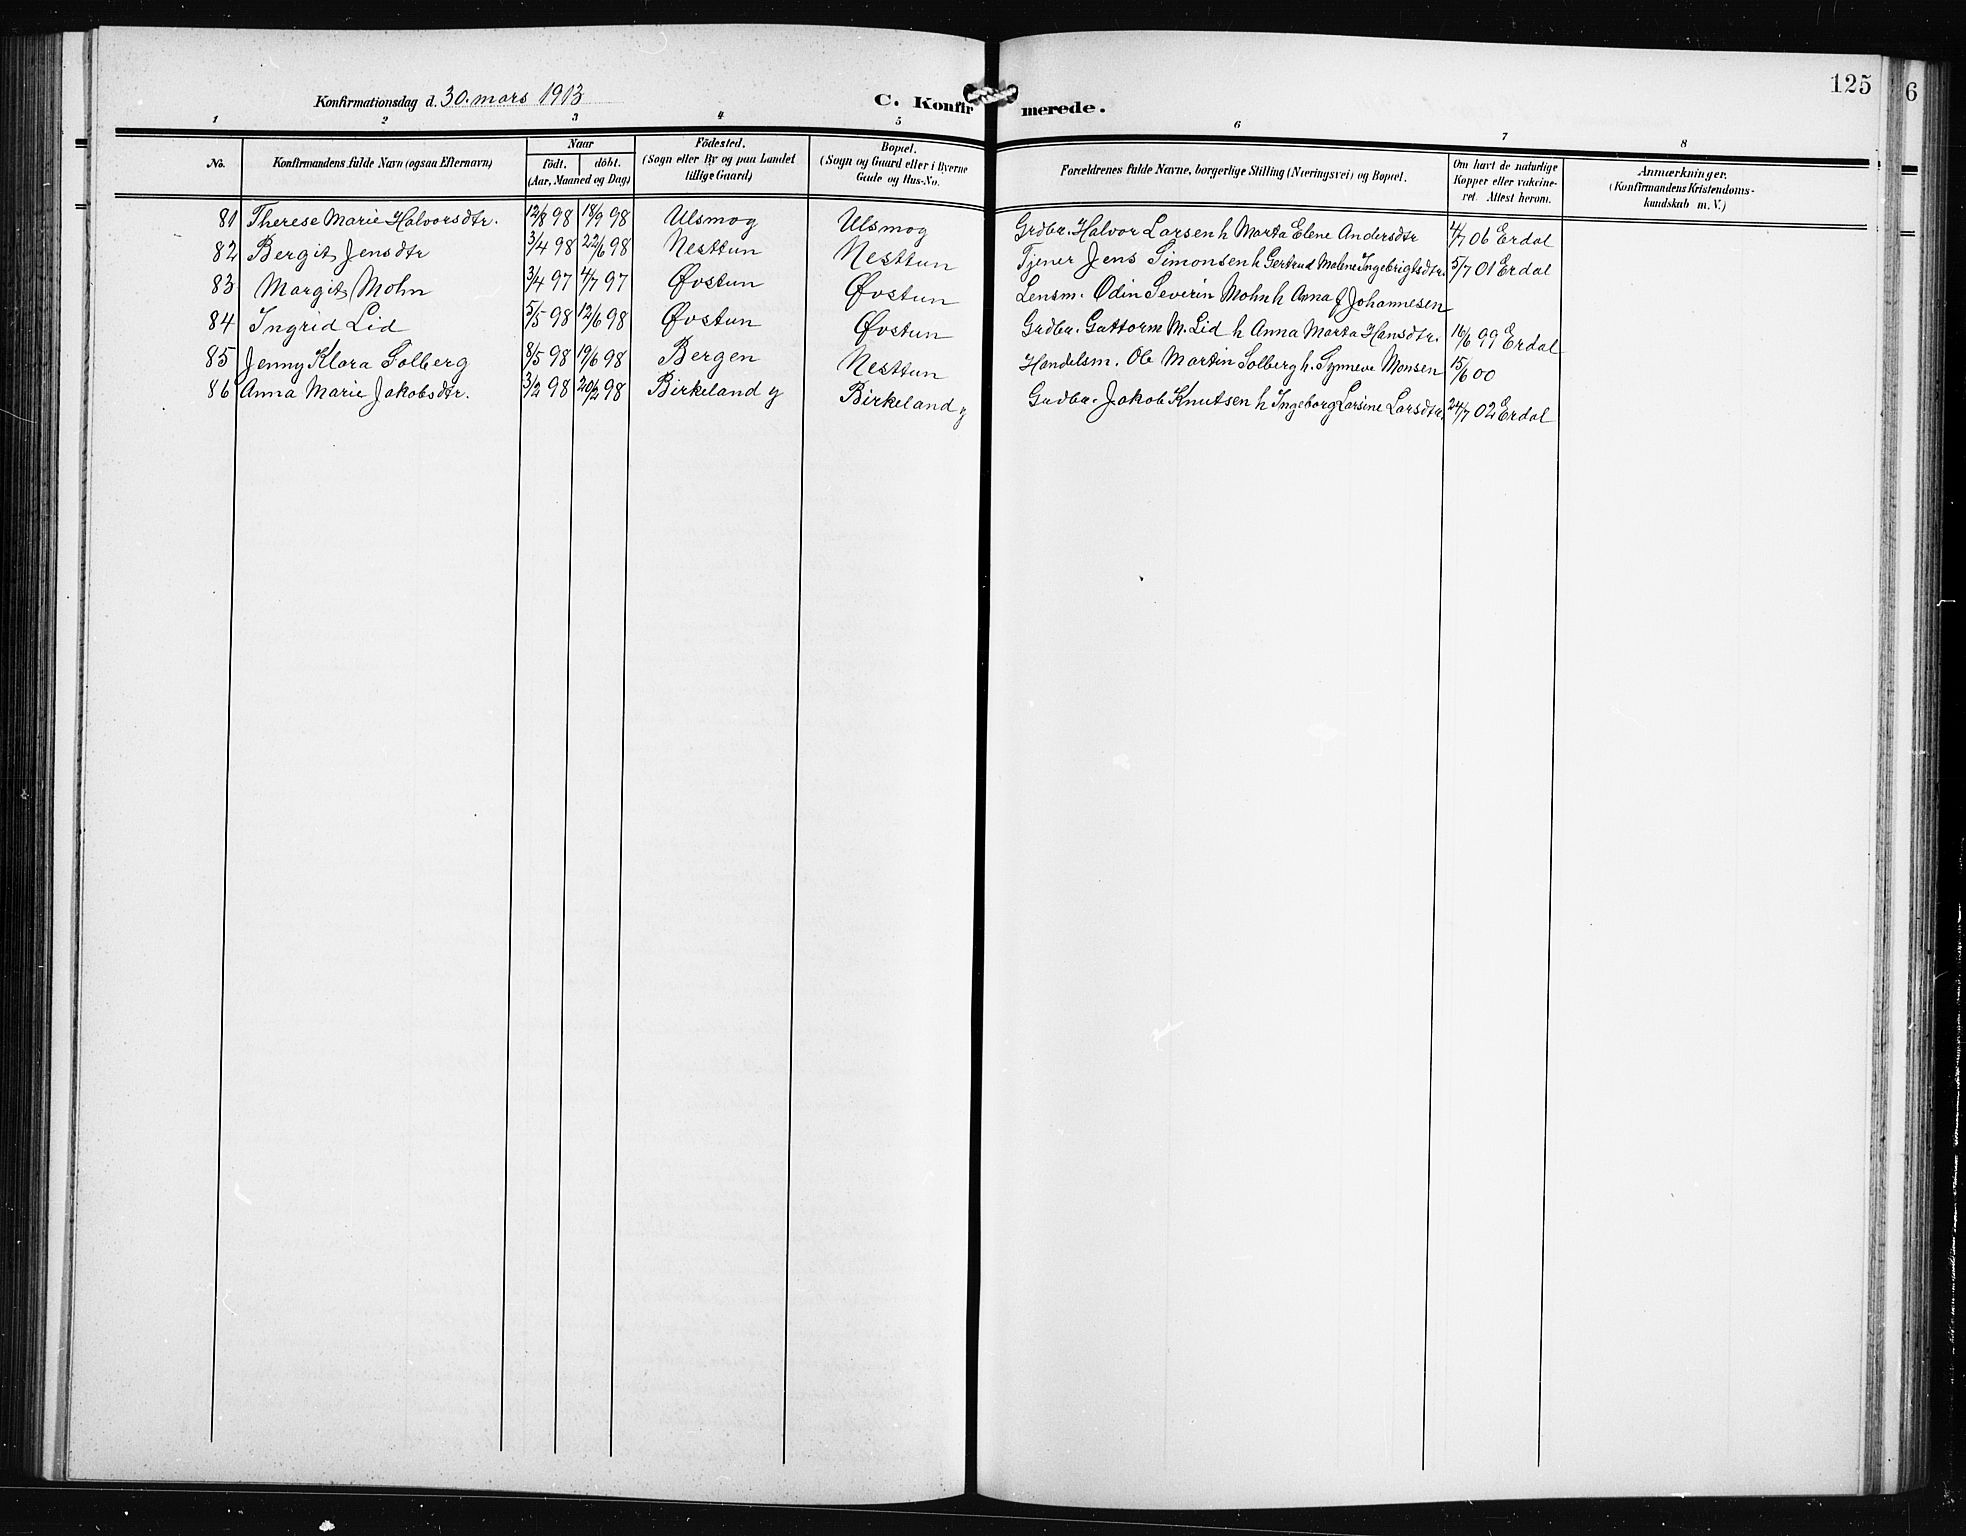 125
6
Konfirmationsdag d. 30. mars 1913
C. Konfirmerede.
1 2 3 4 5 6 7 8
No.
Konfirmandens fulde Navn (ogsaa Efternavn)
Naar
født. døbt.
(Aar, Maaned og Dag)
Fødested.
(Sogn eller By og paa Landet
tillige Gaard)
Bopæl.
(Sogn og Gaard eller i Byerne
Gade og Hus-No.
Forældrenes fulde Navne, borgerlige Stilling (Næringsvei) og Bopæl.
Om havt de naturlige
Kopper eller vakcine-
ret. Attest herom.
Anmærkninger.
(Konfirmandens Kristendoms-
kundskab m. V.)
81 Therese Marie Halvorsdtr. 12/8 98 18/9 98 Ulsmog Ulsmog Grdbr. Halvor Larsen h Marta Elene Andersdtr 4/7 06 Erdal
82 Bergit Jensdtr 3/4 98 22/6 98 Nesttun Nesttun Tjener Jens Simonsen h Gertrud Malene Ingebrigtsdtr. 5/7 01 Erdal
83 Margit Mohn 3/4 97 4/7 97 Øvstun Øvstun Lensm. Odin Severin Mohn h Anna J Johannesen
84 Ingrid Lid 5/5 98 12/6 98 Øvstun Øvstun Grdbr. Guttorm M. Lid h Anna Marta Hansdtr. 16/6 99 Erdal
85 Jenny Klara Solberg 8/5 98 19/6 98 Bergen Nesttun Handelsm. Ole Martin Solberg h. Synneve Monsen 15/6 00
86 Anna Marie Jakobsdtr. 3/2 98 20/2 98 Birkeland y Birkeland y Grdbr. Jakob Knutsen h Ingeborg Larsine Larsdtr. 24/7 02 Erdal